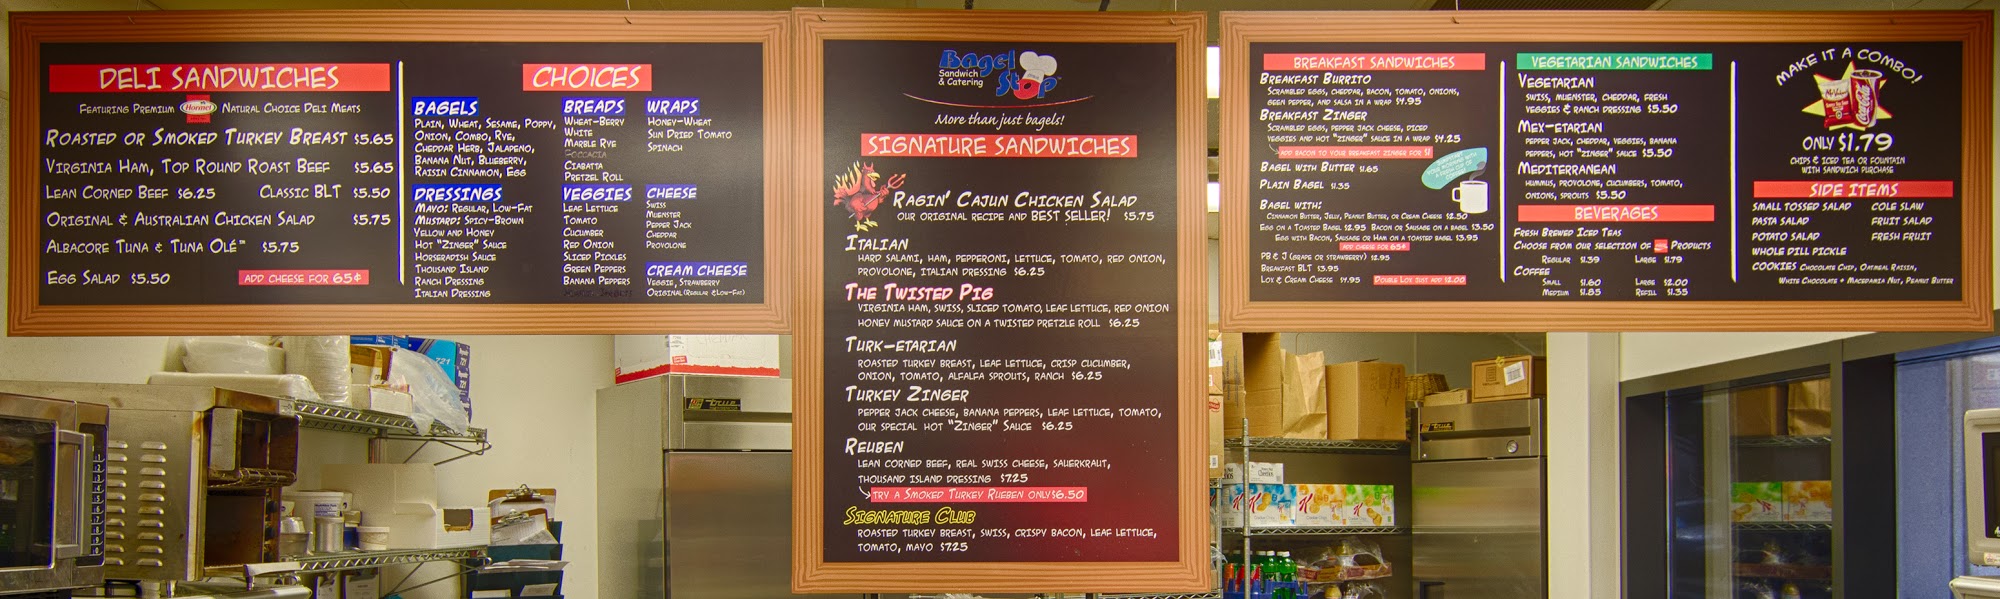 DELI SANDWICHES
FEATURING PREMIUM Hormel NATURAL CHOICE DELI MEATS
ROASTED OR SMOKED TURKEY BREAST $5.65
VIRGINIA HAM, TOP ROUND ROAST BEEF $5.65
LEAN CORNED BEEF $6.25 CLASSIC BLT $5.50
ORIGINAL & AUSTRALIAN CHICKEN SALAD $5.75
ALBACORE TUNA & TUNA OLÉ™ $5.75
EGG SALAD $5.50 ADD CHEESE FOR 65¢
CHOICES
BAGELS
PLAIN, WHEAT, SESAME, POPPY,
ONION, COMBO, RYE,
CHEDDAR HERB, JALAPENO,
BANANA NUT, BLUEBERRY,
RAISIN CINNAMON, EGG
BREADS
WHEAT-BERRY
WHITE
MARBLE RYE
FOCCACIA
CIABATTA
PRETZEL ROLL
WRAPS
HONEY-WHEAT
SUN DRIED TOMATO
SPINACH
DRESSINGS
MAYO: REGULAR, LOW-FAT
MUSTARD: SPICY-BROWN
YELLOW AND HONEY
HOT "ZINGER" SAUCE
HORSERADISH SAUCE
THOUSAND ISLAND
RANCH DRESSING
ITALIAN DRESSING
VEGGIES
LEAF LETTUCE
TOMATO
CUCUMBER
RED ONION
SLICED PICKLES
GREEN PEPPERS
BANANA PEPPERS
CHEESE
SWISS
MUENSTER
PEPPER JACK
CHEDDAR
PROVOLONE
CREAM CHEESE
VEGGIE, STRAWBERRY
ORIGINAL (REGULAR & LOW-FAT)
Bagel Stop
Sandwich
& Catering
More than just bagels!
SIGNATURE SANDWICHES
RAGIN' CAJUN CHICKEN SALAD
OUR ORIGINAL RECIPE AND BEST SELLER! $5.75
ITALIAN
HARD SALAMI, HAM, PEPPERONI, LETTUCE, TOMATO, RED ONION,
PROVOLONE, ITALIAN DRESSING $6.25
THE TWISTED PIG
VIRGINIA HAM, SWISS, SLICED TOMATO, LEAF LETTUCE, RED ONION
HONEY MUSTARD SAUCE ON A TWISTED PRETZLE ROLL $6.25
TURK-ETARIAN
ROASTED TURKEY BREAST, LEAF LETTUCE, CRISP CUCUMBER,
ONION, TOMATO, ALFALFA SPROUTS, RANCH $6.25
TURKEY ZINGER
PEPPER JACK CHEESE, BANANA PEPPERS, LEAF LETTUCE, TOMATO,
OUR SPECIAL HOT "ZINGER" SAUCE $6.25
REUBEN
LEAN CORNED BEEF, REAL SWISS CHEESE, SAUERKRAUT,
THOUSAND ISLAND DRESSING $7.25
TRY A SMOKED TURKEY RUEBEN ONLY $6.50
SIGNATURE CLUB
ROASTED TURKEY BREAST, SWISS, CRISPY BACON, LEAF LETTUCE,
TOMATO, MAYO $7.25
BREAKFAST SANDWICHES
BREAKFAST BURRITO
SCRAMBLED EGGS, CHEDDAR, BACON, TOMATO, ONIONS,
GEEN PEPPER, AND SALSA IN A WRAP $4.95
BREAKFAST ZINGER
SCRAMBLED EGGS, PEPPER JACK CHEESE, DICED
VEGGIES AND HOT "ZINGER" SAUCE IN A WRAP $4.25
ADD BACON TO YOUR BREAKFAST ZINGER FOR $1
BAGEL WITH BUTTER $1.65
PLAIN BAGEL $1.35
BAGEL WITH:
CINNAMON BUTTER, JELLY, PEANUT BUTTER, OR CREAM CHEESE $2.50
EGG ON A TOASTED BAGEL $2.95 BACON OR SAUSAGE ON A BAGEL $3.50
EGG WITH BACON, SAUSAGE OR HAM ON A TOASTED BAGEL $3.95
ADD CHEESE FOR 65¢
PB & J (GRAPE OR STRAWBERRY) $2.95
BREAKFAST BLT $3.95
LOX & CREAM CHEESE $4.95 DOUBLE LOX JUST ADD $2.00
VEGETARIAN SANDWICHES
VEGETARIAN
SWISS, MUENSTER, CHEDDAR, FRESH
VEGGIES & RANCH DRESSING $5.50
MEX-ETARIAN
PEPPER JACK, CHEDDAR, VEGGIES, BANANA
PEPPERS, HOT "ZINGER" SAUCE $5.50
MEDITERRANEAN
HUMMUS, PROVOLONE, CUCUMBERS, TOMATO,
ONIONS, SPROUTS $5.50
BEVERAGES
FRESH BREWED ICED TEAS
CHOOSE FROM OUR SELECTION OF PRODUCTS
REGULAR $1.39 LARGE $1.79
COFFEE
SMALL $1.60 LARGE $2.00
MEDIUM $1.85 REFILL $1.35
MAKE IT A COMBO!
ONLY $1.79
CHIPS & ICED TEA OR FOUNTAIN
WITH SANDWICH PURCHASE
SIDE ITEMS
SMALL TOSSED SALAD COLE SLAW
PASTA SALAD FRUIT SALAD
POTATO SALAD FRESH FRUIT
WHOLE DILL PICKLE
COOKIES CHOCOLATE CHIP, OATMEAL RAISIN,
WHITE CHOCOLATE & MACEDAMIA NUT, PEANUT BUTTER
true
true
721